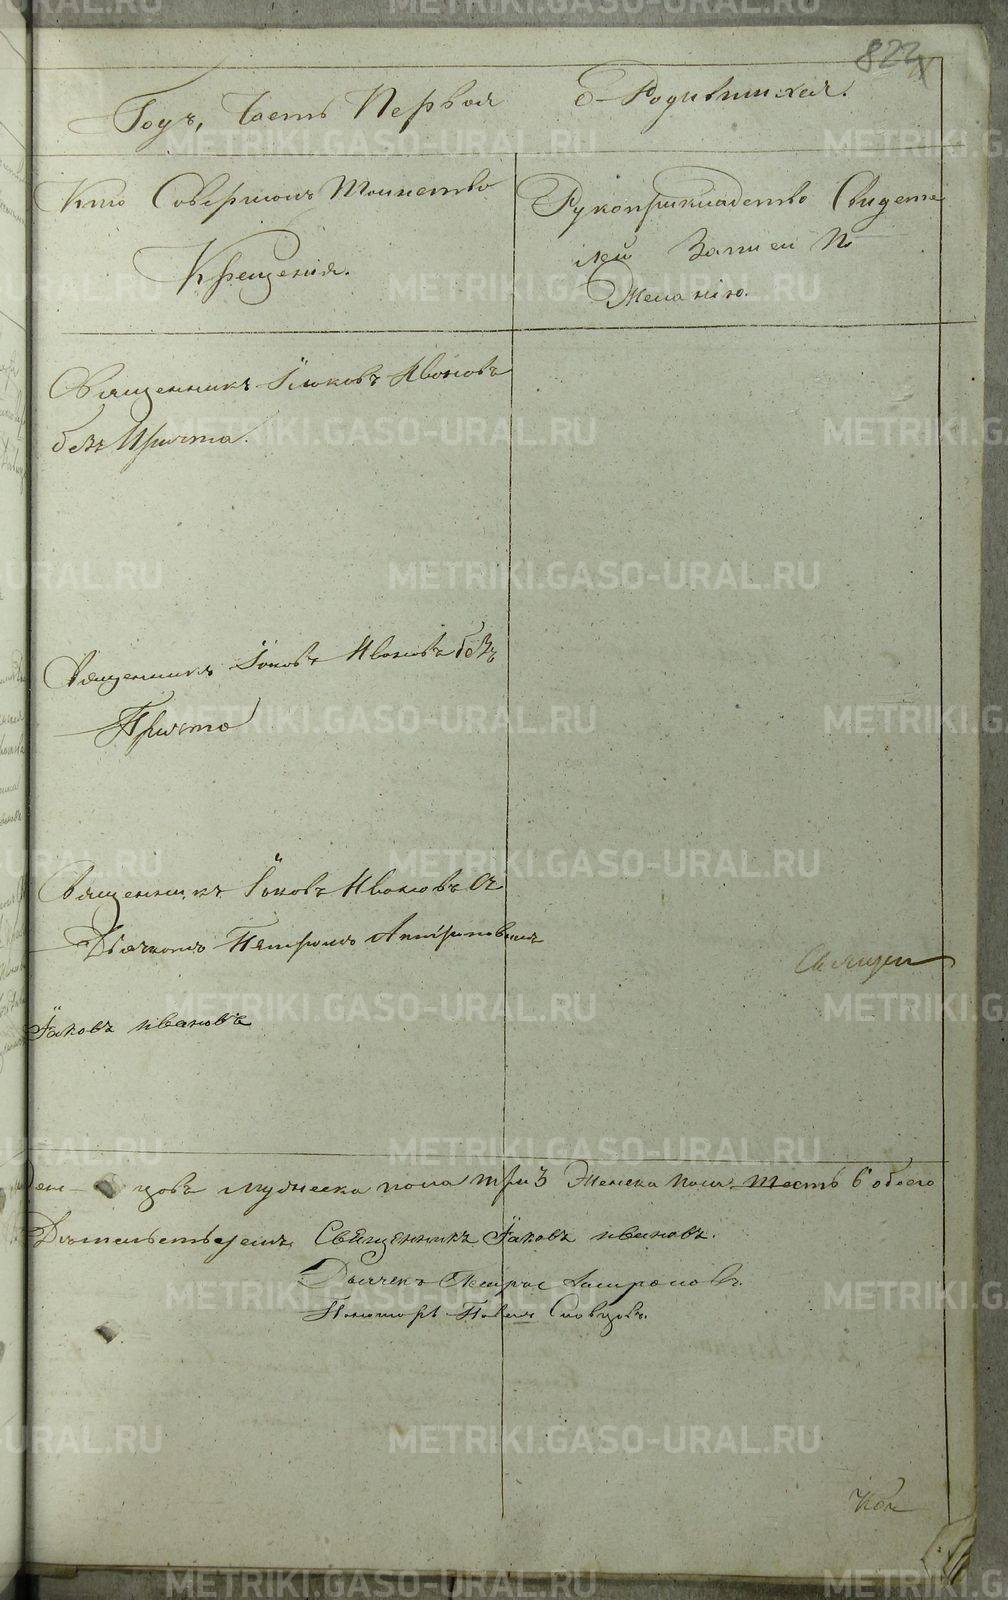 823
Годъ, Часть Первая о Родившихся.
Кто Совершалъ Таинство
Крещенія.
Рукоприкладство Свидете
лей Записи По
Желанію.
Священникъ Іяковъ Ивановъ
безъ Причта.
Священникъ Іяковъ Ивановъ безъ
Причта
Священникъ Іяковъ Ивановъ съ
Дьячкомъ Петромъ
Священ
Іаковъ Ивановъ
мужеска пола три 3 Женска пола шесть 6 обоего
Священникъ Іаковъ Ивановъ.
Дьячекъ Петръ
Пономарь Павелъ Словцовъ.
METRIKI.GASO-URAL.RU